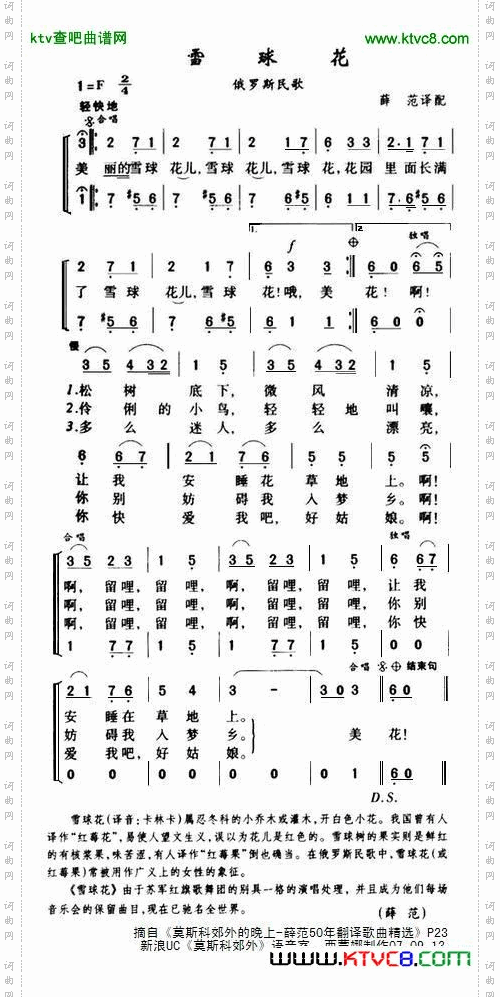 ktv查吧曲谱网 www.ktvc8.com
雪 球 花
1=F 2/4 俄罗斯民歌
轻快地 薛 范译配
合唱
3 2 7 1 2 7 1 2 1 7 6 3 3 2·1 7 1
美 丽的雪球 花儿,雪球 花儿,雪球 花,花园 里面长满
1 7 #5 6 7 #5 6 7 6 #5 6 1 1 7·6 #5 6
1. 2.
f 独唱
2 7 1 2 2 1 7 6 3 3 6 0 6 5
了 雪球 花儿,雪球 花!哦, 美 花! 啊!
7 #5 6 7 7 6 #5 6 1 1 6 0 0
慢
3 5 4 3 2 1 5 3 5 4 3 2 1 5
1.松 树 底 下, 微 风 清 凉,
2.伶 俐 的 小 鸟, 轻 轻 地 叫 嚷,
3.多 么 迷 人, 多 么 漂 亮,
6 6 7 2 1 7 6 5 5 5 5
让 我 安 睡 在 草 地 上。啊!
你 别 妨 碍 我 入 梦 乡。啊!
你 快 爱 我 吧,好 姑 娘。啊!
合唱 独唱
3 5 2 3 2 1 5 3 5 2 3 2 1 5 6 6 7
啊, 留 哩, 留 哩, 啊, 留 哩, 留 哩, 让 我
啊, 留 哩, 留 哩, 啊, 留 哩, 留 哩, 你 别
啊, 留 哩, 留 哩, 啊, 留 哩, 留 哩, 你 快
1 7 7 1 5 1 7 7 1 5 0 0
合唱 结束句
2 1 7 6 5 4 3 - 3 0 3 6 0 0
安 睡 在 草 地 上。
妨 碍 我 入 梦 乡。 美 花!
爱 我 吧,好 姑 娘。
0 0 0 0 0 0 0 0 6 0 0
D.S.
雪球花(译音:卡林卡)属忍冬科的小乔木或灌木,开白色小花。我国曾有人
译作“红莓花”,易使人望文生义,误以为花儿是红色的。雪球树的果实则是鲜红
的有核浆果,味苦涩,有人译作“红莓果”倒也确当。在俄罗斯民歌中,雪球花(或
红莓果)常被用作广义上的女性的象征。
《雪球花》由于苏军红旗歌舞团的别具一格的演唱处理,并且成为他们每场
音乐会的保留曲目,现在已驰名全世界。
(薛 范)
摘自《莫斯科郊外的晚上-薛范50年翻译歌曲精选》P23
新浪UC《莫斯科郊外》语音室
www.KTVC8.com